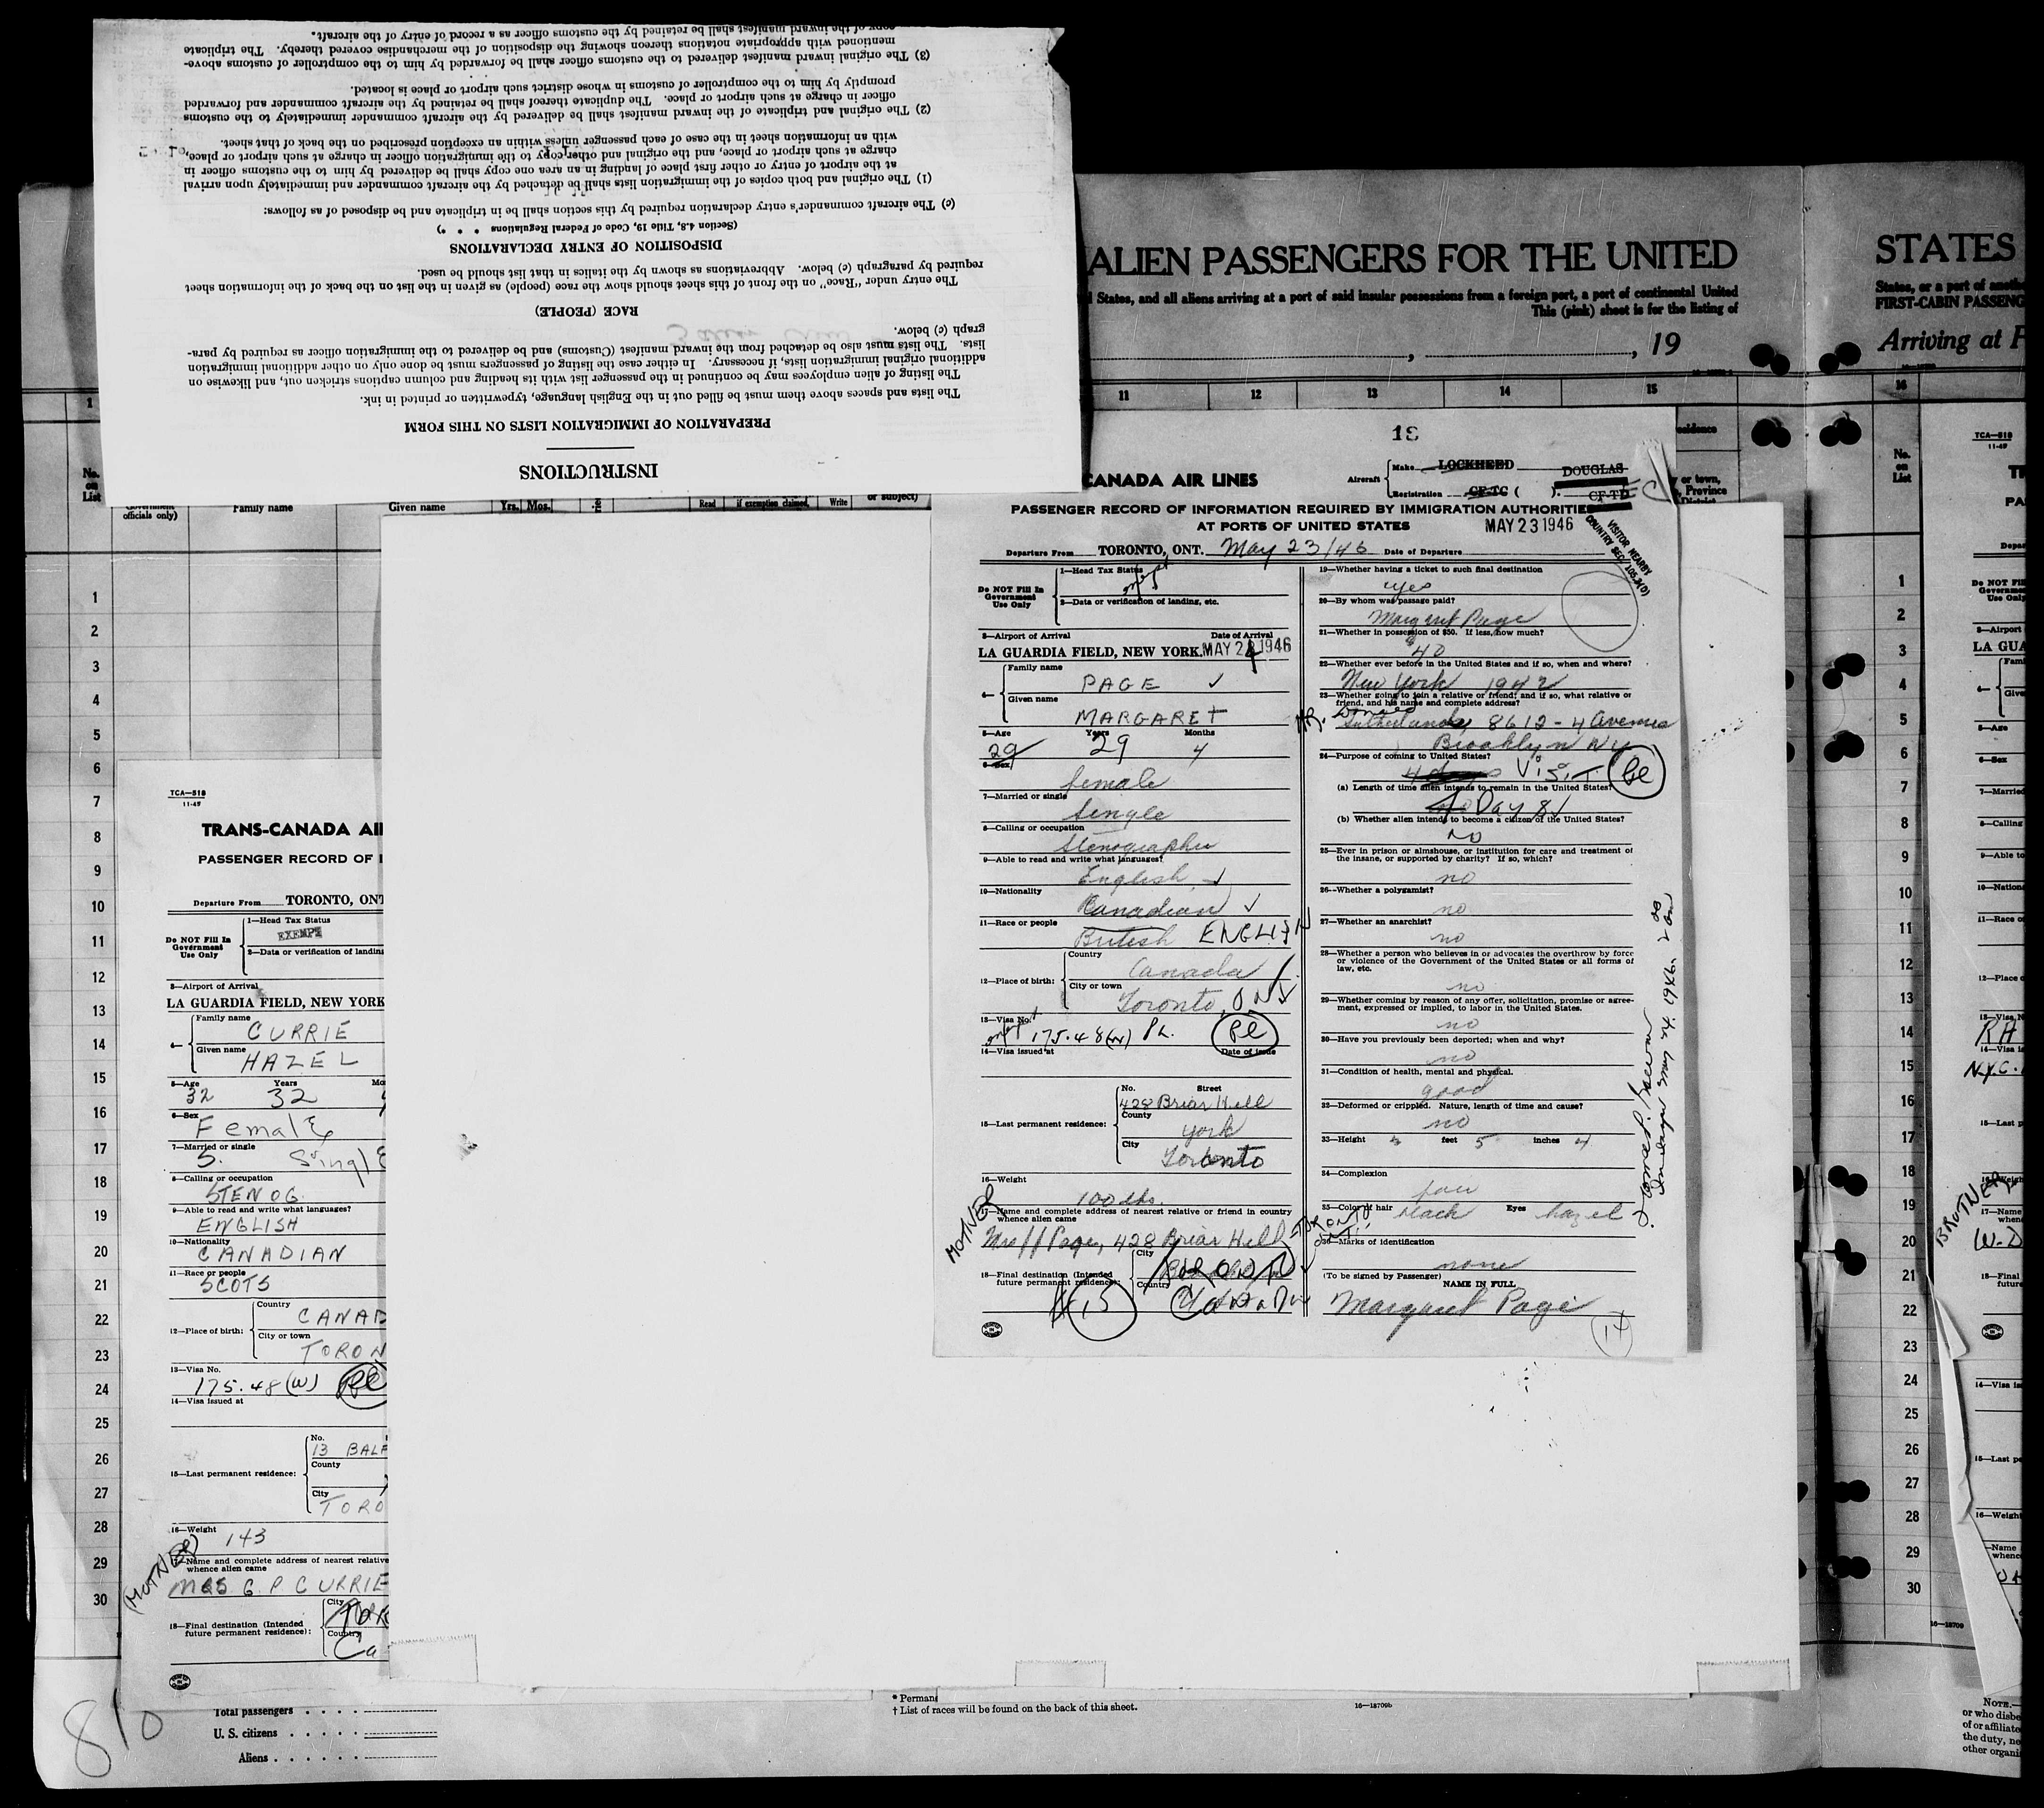 INSTRUCTIONS
PREPARATION OF IMMIGRATION LISTS ON THIS FORM
The lists and spaces above them must be filled out in the English language, typewritten or printed in ink.
The listing of alien employees may be continued in the passenger list with its heading and column captions stricken out, and likewise on
additional original immigration lists, if necessary. In either case the listing of passengers must be done only on other additional immigration
lists. The lists must also be detached from the inward manifest (Customs) and be delivered to the immigration officer as required by para-
graph (c) below.
RACE (PEOPLE)
The entry under "Race" on the front of this sheet should show the race (people) as given in the list on the back of the information sheet
required by paragraph (c) below. Abbreviations as shown by the italics in that list should be used.
DISPOSITION OF ENTRY DECLARATIONS
(Section 4.8, Title 19, Code of Federal Regulations * * *)
(c) The aircraft commander's entry declaration required by this section shall be in triplicate and be disposed of as follows:
(1) The original and both copies of the immigration lists shall be detached by the aircraft commander and immediately upon arrival
at the airport of entry or other first place of landing in an area one copy shall be delivered by him to the customs officer in
charge at such airport or place, and the original and other copy to the immigration officer in charge at such airport or place,
with an information sheet in the case of each passenger unless within an exception prescribed on the back of that sheet.
(2) The original and triplicate of the inward manifest shall be delivered by the aircraft commander immediately to the customs
officer in charge at such airport or place. The duplicate thereof shall be retained by the aircraft commander and forwarded
promptly by him to the comptroller of customs in whose district such airport or place is located.
(3) The original inward manifest delivered to the customs officer shall be forwarded by him to the comptroller of customs above-
mentioned with appropriate notations thereon showing the disposition of the merchandise covered thereby. The triplicate
copy of the inward manifest shall be retained by the customs officer as a record of entry of the aircraft.
ALIEN PASSENGERS FOR THE UNITED
States, and all aliens arriving at a port of said insular possessions from a foreign port, a port of continental United
This (pink) sheet is for the listing of
, 19
11 12 13 14 15
STATES
States, or a port of
FIRST-CABIN
Arriving at
16
No. on List
Government officials only)
Family name Given name Yrs. Mos. Read if exemption claimed, Write or subject)
18
CANADA AIR LINES
Aircraft
Make LOCKHEED DOUGLAS
Registration CF-TC ( ). CF-TD
PASSENGER RECORD OF INFORMATION REQUIRED BY IMMIGRATION AUTHORITIES
AT PORTS OF UNITED STATES
MAY 23 1946
VISITOR NEARBY
COUNTRY SEC.
Departure From TORONTO, ONT. May 23/46 Date of Departure
Do NOT Fill In Government Use Only
1—Head Tax Status
2—Data or verification of landing, etc.
3—Airport of Arrival Date of Arrival
LA GUARDIA FIELD, NEW YORK. MAY 24 1946
4—
Family name
PAGE
Given name
MARGARET
5—Age Years Months
29 29 4
6—Sex
female
7—Married or single
Single
8—Calling or occupation
Stenographer
9—Able to read and write what languages?
English
10—Nationality
Canadian
11—Race or people
British ENGLISH
12—Place of birth:
Country
Canada
City or town
Toronto, ONT
13—Visa No.
175.48(W) PL.
14—Visa issued at Date of issue
15—Last permanent residence:
No. Street
428 Briar Hill
County
York
City
Toronto
16—Weight
100 lbs.
17—Name and complete address of nearest relative or friend in country
whence alien came
MOTHER
Mrs Page, 428 Briar Hill TORONTO
18—Final destination (Intended
future permanent residence):
City
TORONTO
Country
Canada
19—Whether having a ticket to such final destination
yes
20—By whom was passage paid?
Margaret Page
21—Whether in possession of $50. If less, how much?
40
22—Whether ever before in the United States and if so, when and where?
New York 1942
23—Whether going to join a relative or friend; and if so, what relative or
friend, and his name and complete address?
Mr. Donald Sutherland, 8612-4 Avenue
Brooklyn NY
24—Purpose of coming to United States?
VISIT
(a) Length of time alien intends to remain in the United States?
Days
(b) Whether alien intends to become a citizen of the United States?
no
25—Ever in prison or almshouse, or institution for care and treatment of
the insane, or supported by charity? If so, which?
no
26—Whether a polygamist?
no
27—Whether an anarchist?
no
28—Whether a person who believes in or advocates the overthrow by force
or violence of the Government of the United States or all forms of
law, etc.
no
29—Whether coming by reason of any offer, solicitation, promise or agree-
ment, expressed or implied, to labor in the United States.
no
30—Have you previously been deported; when and why?
no
31—Condition of health, mental and physical.
good
32—Deformed or crippled. Nature, length of time and cause?
no
33—Height feet 5 inches 4
34—Complexion
fair
35—Color of hair black Eyes hazel
36—Marks of identification
none
(To be signed by Passenger)
NAME IN FULL
Margaret Page
14
TCA—518
11-45
TRANS-CANADA AI
PASSENGER RECORD OF I
Departure From TORONTO, ONT
Do NOT Fill In Government Use Only
1—Head Tax Status
EXEMPT
2—Data or verification of landing
3—Airport of Arrival
LA GUARDIA FIELD, NEW YORK
4—
Family name
CURRIE
Given name
HAZEL
5—Age Years Mo
32 32
6—Sex
Female
7—Married or single
S. Single
8—Calling or occupation
STENOG.
9—Able to read and write what languages?
ENGLISH
10—Nationality
CANADIAN
11—Race or people
SCOTS
12—Place of birth:
Country
CANAD
City or town
TORON
13—Visa No.
175.48(W)
14—Visa issued at
15—Last permanent residence:
No.
13 BALF
County
City
TORO
16—Weight
143
17—Name and complete address of nearest relative
whence alien came
(MOTHER)
MRS G. P. CURRIE
18—Final destination (Intended
future permanent residence):
City
TOR
Country
Ca
1
2
3
4
5
6
7
8
9
10
11
12
13
14
15
16
17
18
19
20
21
22
23
24
25
26
27
28
29
30
Total passengers
U. S. citizens
Aliens
810
* Perman
† List of races will be found on the back of this sheet.
16—18709b
TCA—518
11-45
BROTHER
16—18709
NOTE.—
or who disbe
of or affiliate
the duty, ne
other organi